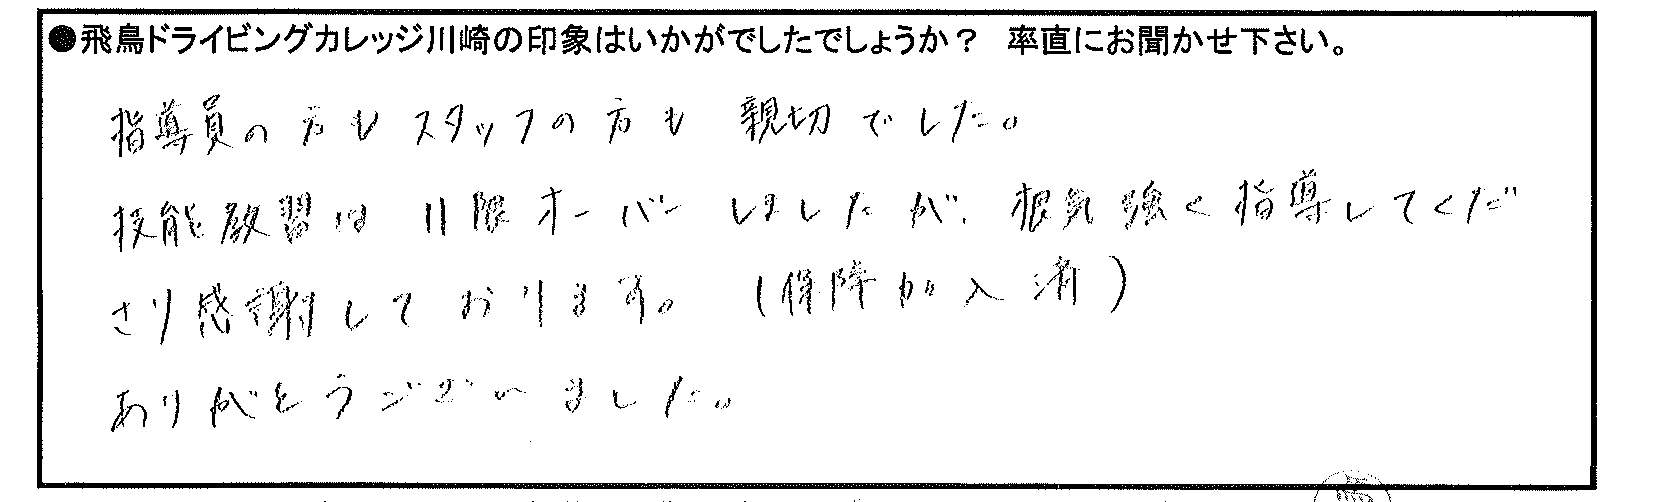 ●飛鳥ドライビングカレッジ川崎の印象はいかがでしたでしょうか？　率直にお聞かせ下さい。
指導員の方も スタッフの方も 親切でした。
技能教習は 11限オーバー しましたが、根気強く指導してくだ
さり感謝して おります。（保障加入済）
ありがとうございました。